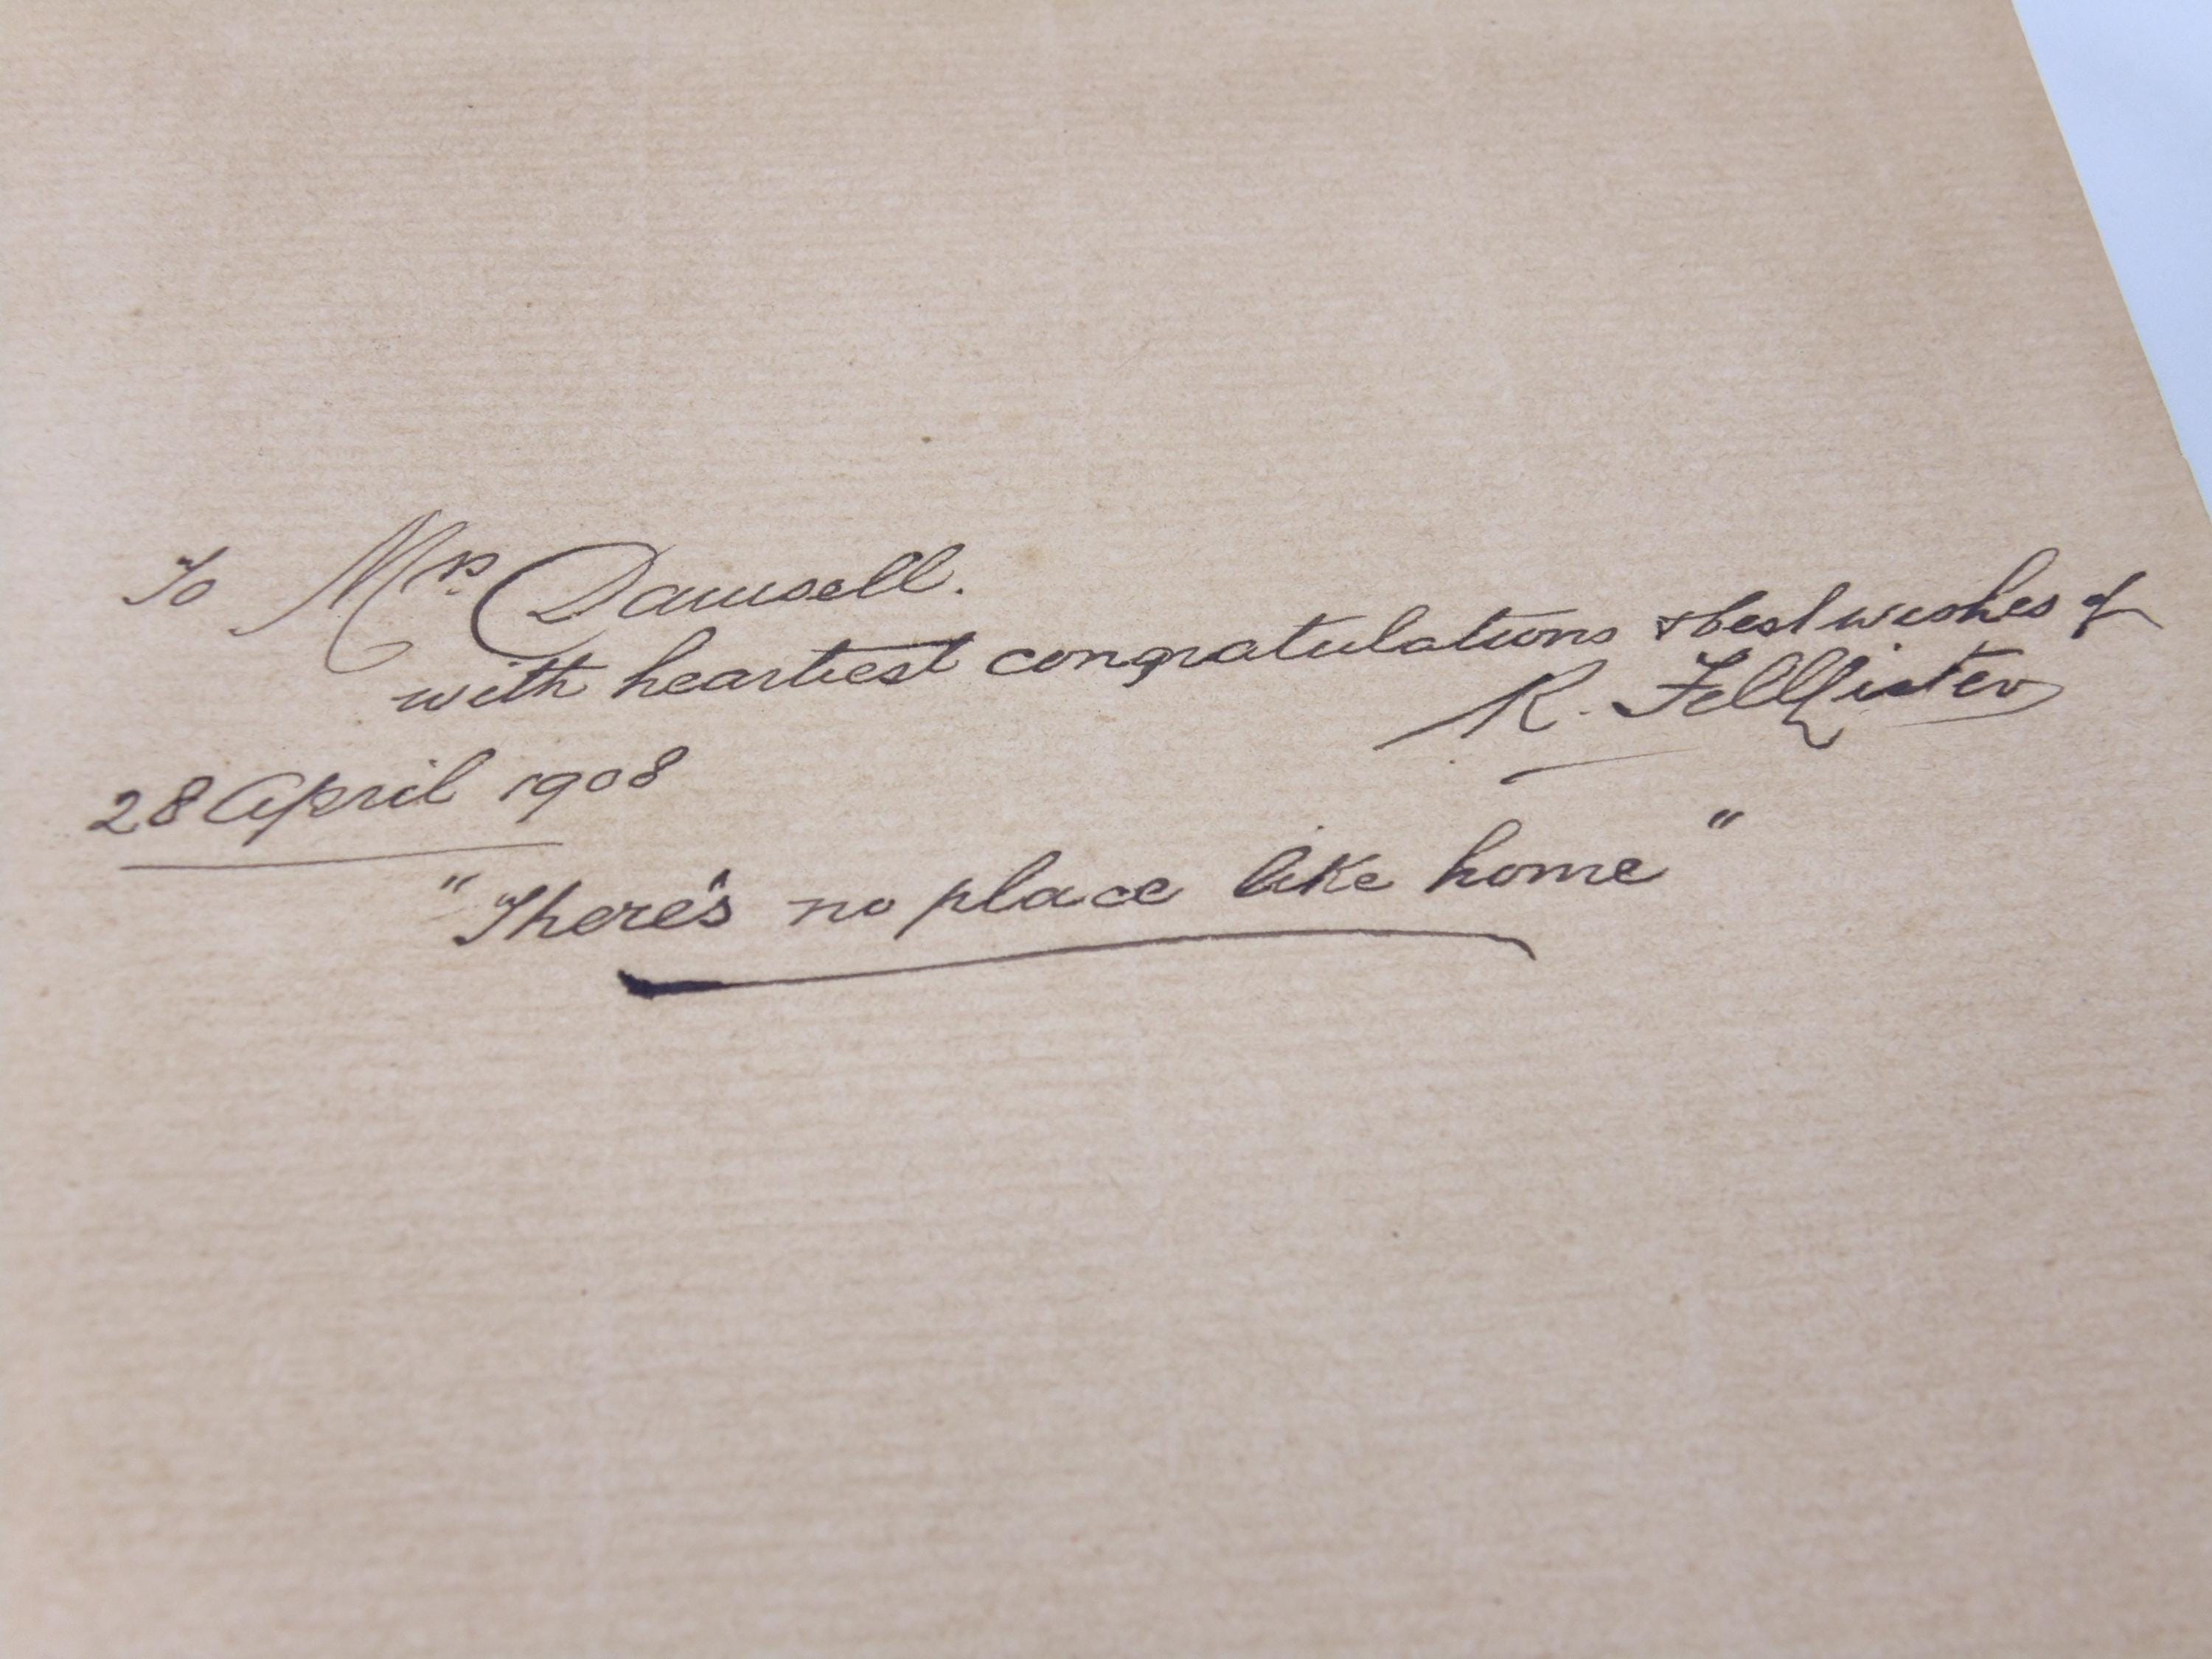 To Mrs. Damsell.
with heartiest congratulations & best wishes of
R.
28 April 1908
"There's no place like home"